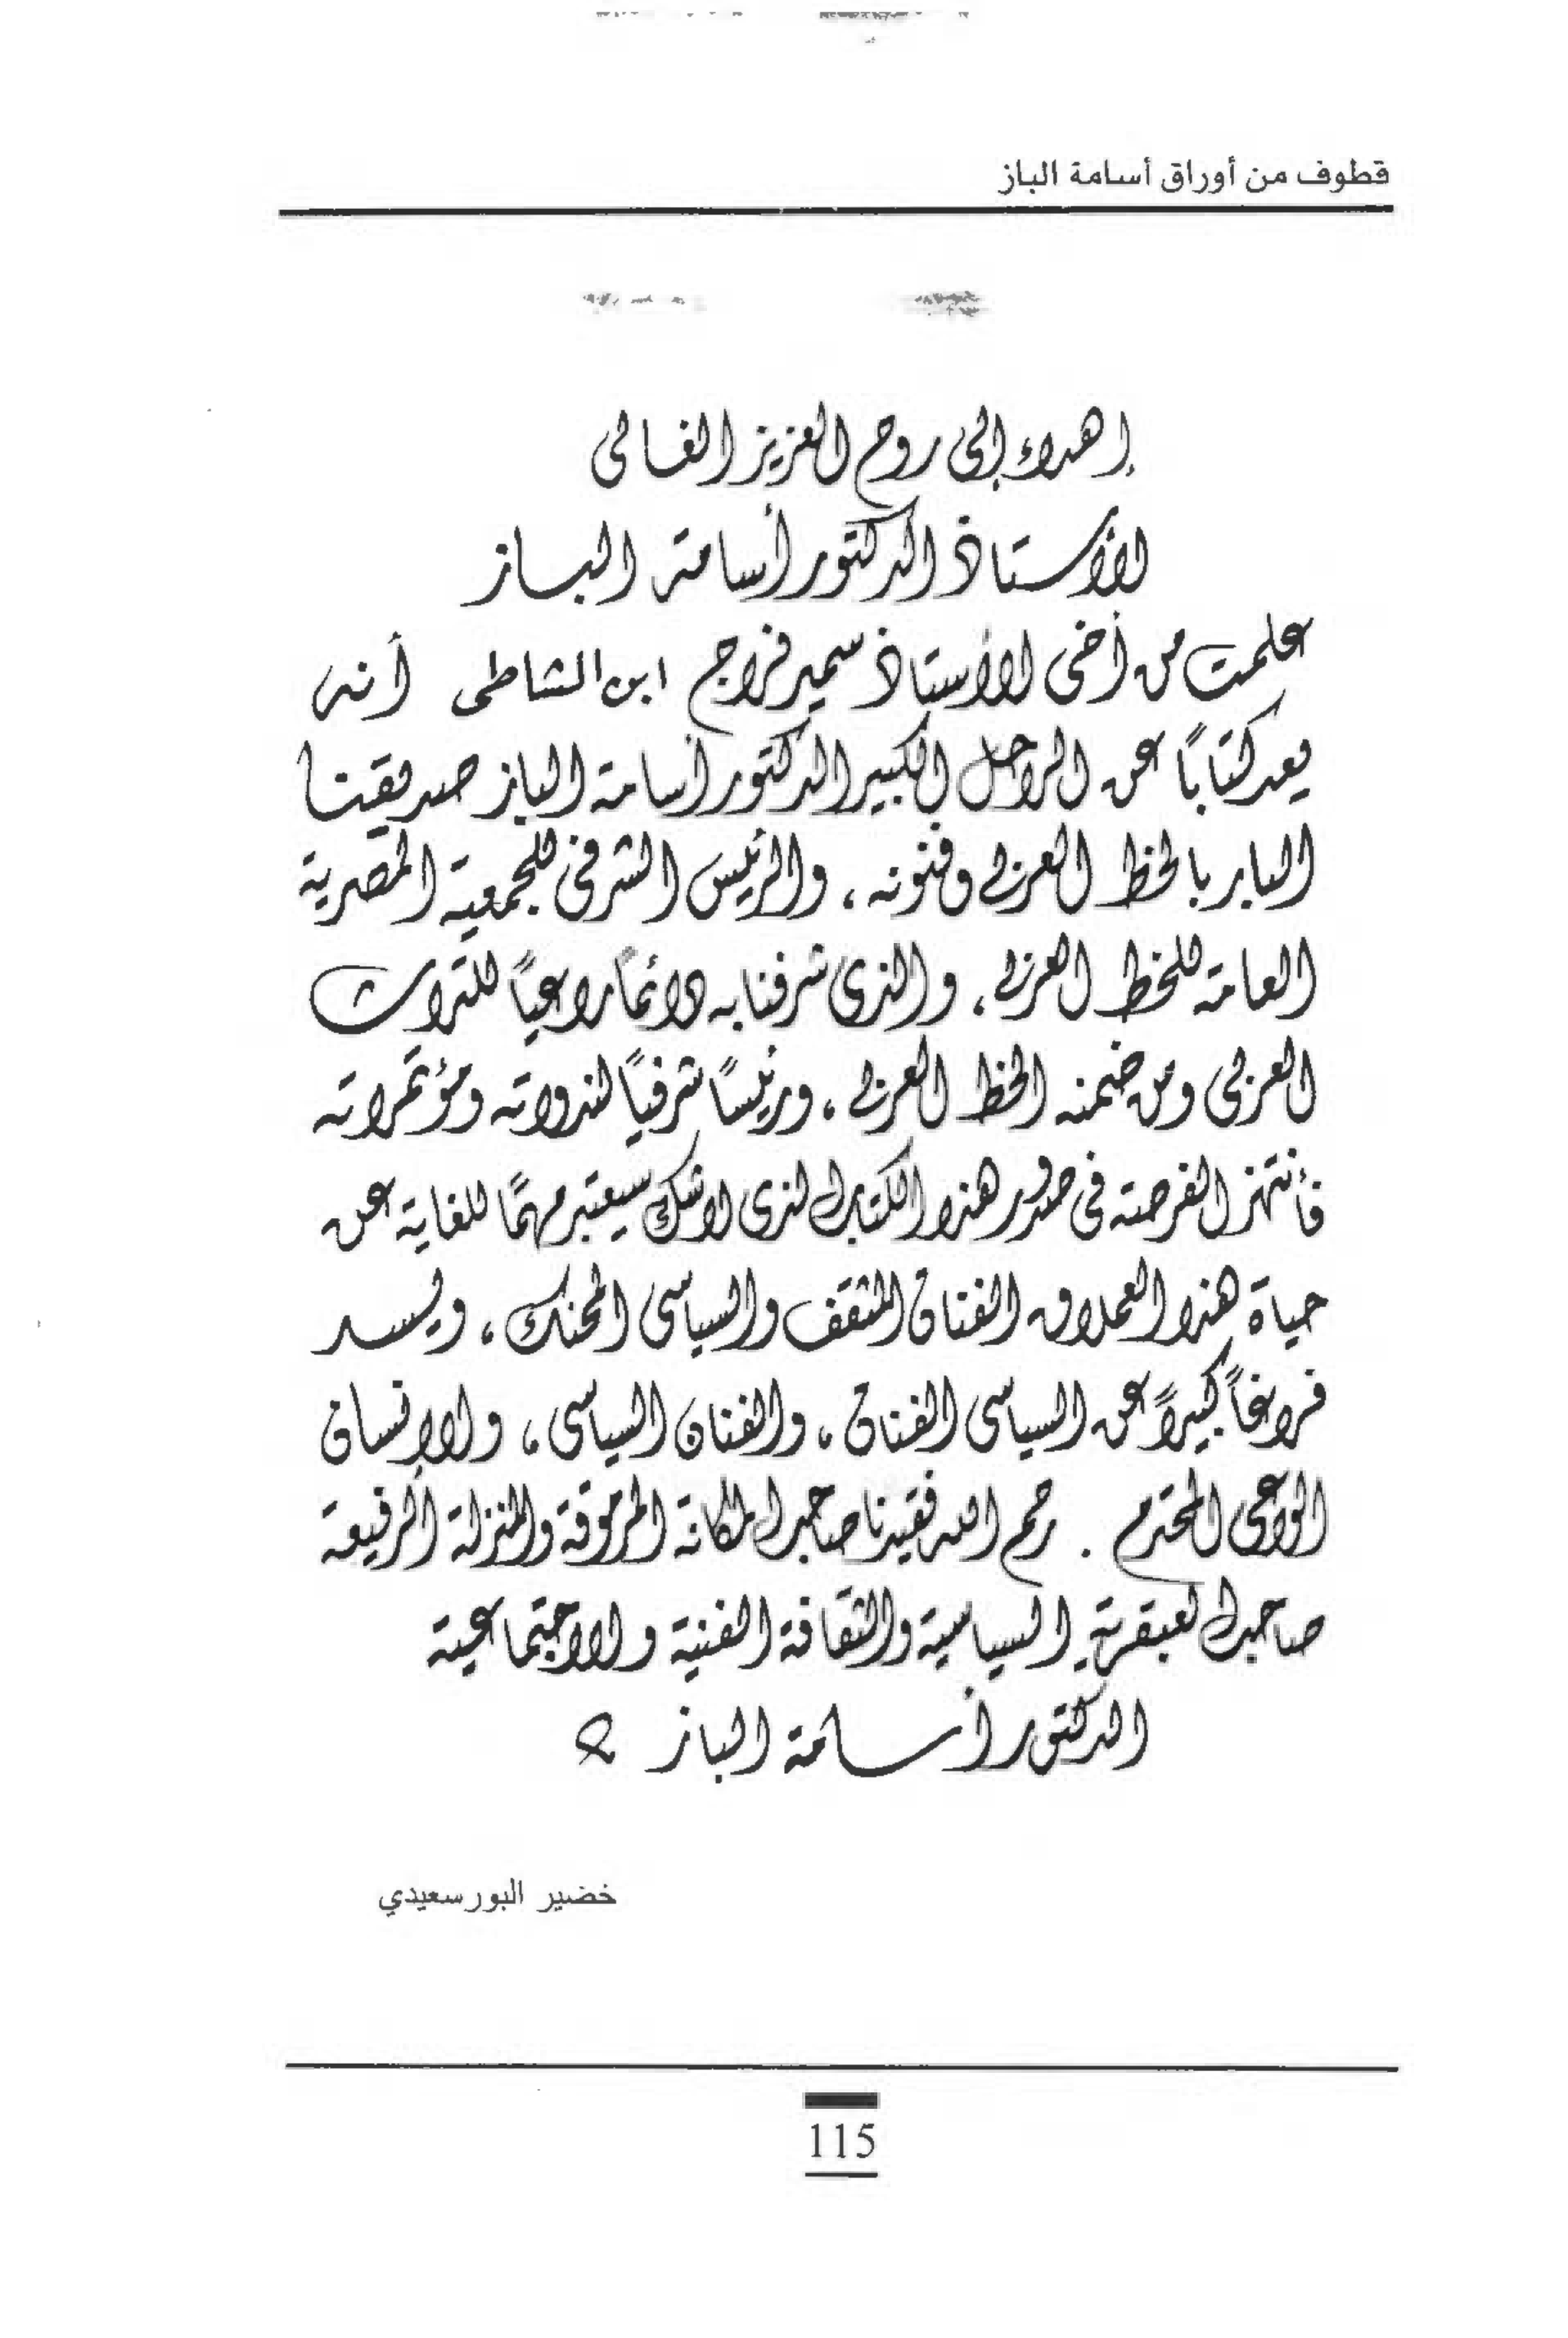 قطوف من أوراق أسامة الباز
إهداء إلى روح العزيز الغالى
الأستاذ الدكتور أسامة البـاز
علمت من أخى الأستاذ سمير فراج ابن الشاطى أنه
يعد كتاباً عن الراحل الكبير الدكتور أسامة الباز صديقنا
البار بالخط العربى وفنونه ، والرئيس الشرفى للجمعية المصرية
العامة للخط العربى ، والذى شرفنا به دائماً راعياً للتراث
العربى ومن ضمنه الخط العربى ، ورئيساً شرفياً لندواته ومؤتمراته
فأنتهز الفرصة فى صدور هذا الكتاب الذى لاشك سيعتبر مهمًا للغاية عن
حياة هذا العملاق الفنان المثقف والسياسى المحنك ، وليسد
فراغاً كبيراً عن السياسى الفنان ، والفنان السياسى ، والإنسان
الواعى المحترم . رحم الله فقيدنا صاحب المكانة المرموقة والمنزلة الرفيعة
صاحب العبقرية السياسية والثقافة الفنية والاجتماعية
الدكتور أسامة الباز
خضير البورسعيدي
115